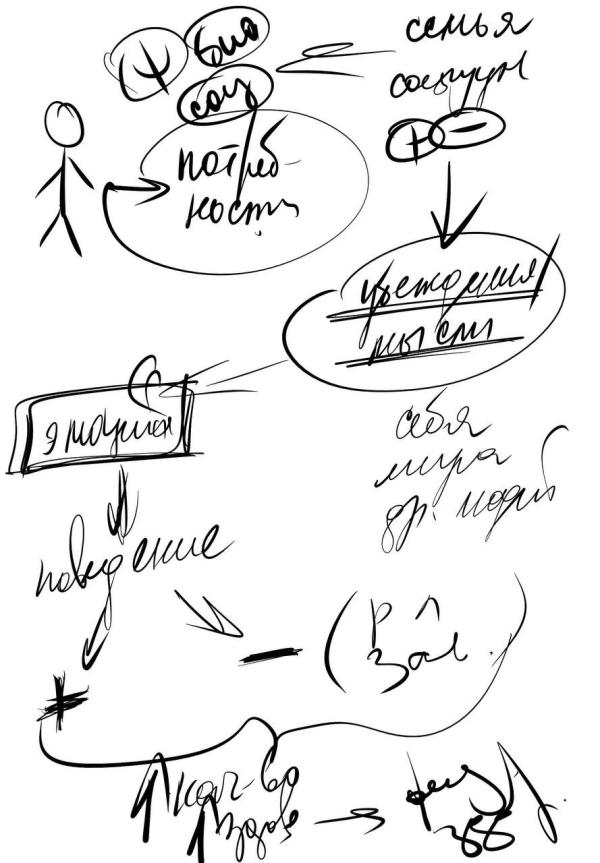 Ψ био
соц
потреб-
ности
семья
социум
+ -
убеждения
мысли
эмоции
себя
мира
др. людей
поведение
-
+
кач-во